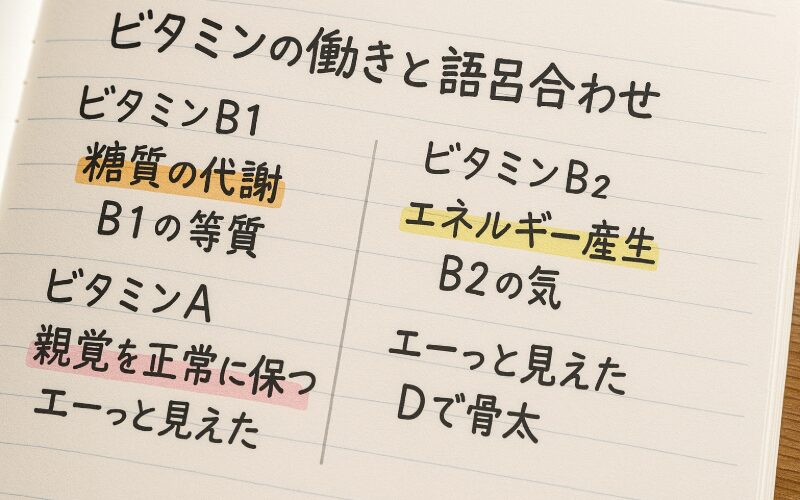 ビタミンの働きと語呂合わせ
ビタミンB1
糖質の代謝
B1の等質
ビタミンA
親覚を正常に保つ
エーっと見えた
ビタミンB2
エネルギー産生
B2の気
エーっと見えた
Dで骨太